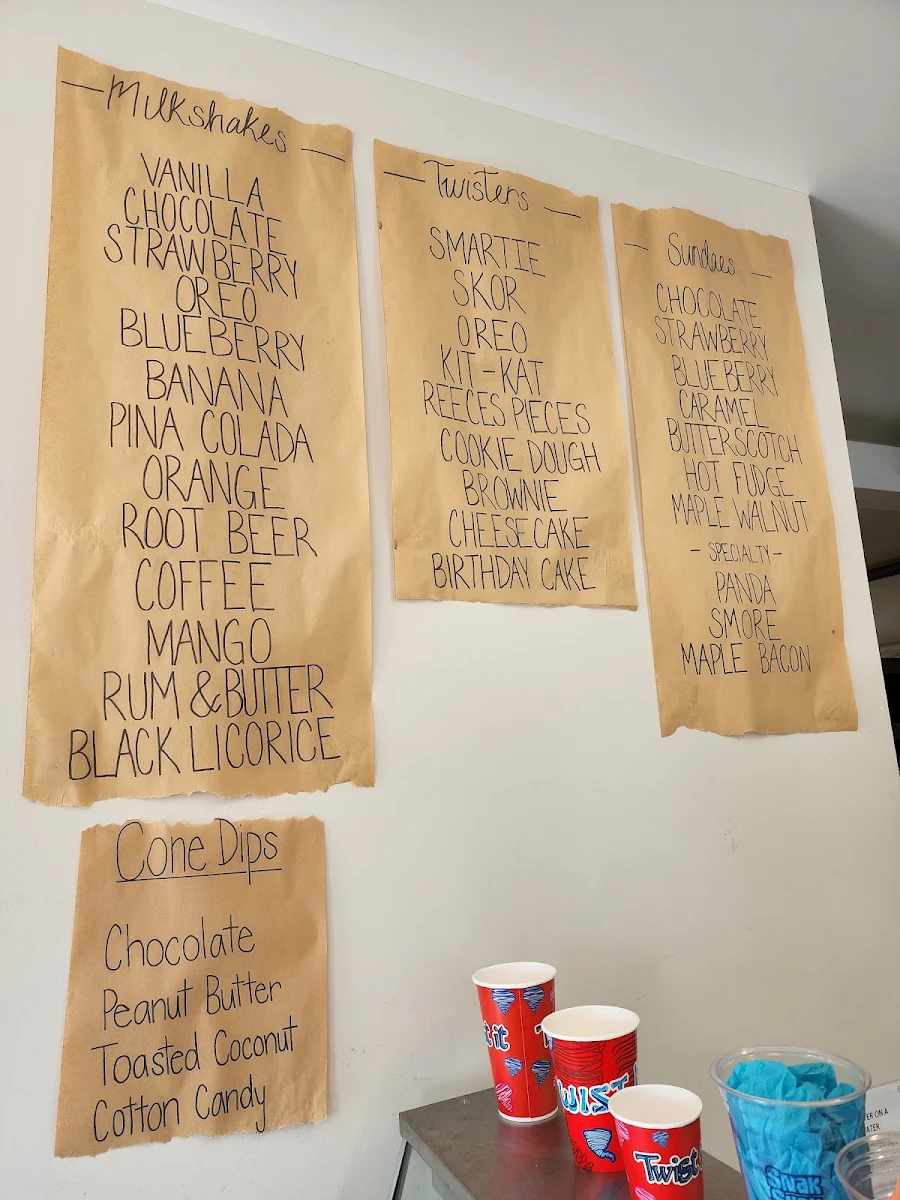 Milkshakes
VANILLA
CHOCOLATE
STRAWBERRY
OREO
BLUEBERRY
BANANA
PINA COLADA
ORANGE
ROOT BEER
COFFEE
MANGO
RUM & BUTTER
BLACK LICORICE
Cone Dips
Chocolate
Peanut Butter
Toasted Coconut
Cotton Candy
Twisters
SMARTIE
SKOR
OREO
KIT-KAT
REECES PIECES
COOKIE DOUGH
BROWNIE
CHEESECAKE
BIRTHDAY CAKE
Sundaes
CHOCOLATE
STRAWBERRY
BLUEBERRY
CARAMEL
BUTTERSCOTCH
HOT FUDGE
MAPLE WALNUT
- SPECIALTY -
PANDA
SMORE
MAPLE BACON
it
TWIST
Twist
Snak
ON A